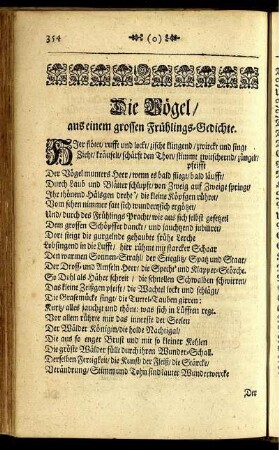 354 (o)
Die Vögel/
aus einem grossen Frühlings-Gedichte.
Hier flötet/ rufft und lockt/ zischt klingend/ zwickt und singt
Zieht/ kräuselt/ schärft den Thon/ stimmt zwitschernd/ züngelt/
pfeifft
Der Vögel muntres Heer/ wenn es bald fliegt/ bald läufft/
Durch Laub und Blätter schlüpft/ von Zweig auf Zweige springt/
Ihr thönend Hälsgen dreht/ die kleine Köpfgen rühret/
Vom sehen nimmer satt sich wunderlich ergötzt/
Und/ durch des Frühlings Pracht/ wie aus sich selbst gesetzt
Dem grossen Schöpffer danckt/ und jauchzend jubiliret/
Dort steigt die gurgelnde gehaubte frühe Lerche
Lobsingend in die Lufft/ hier rühme mit starcker Schaar
Den warmen Sonnen-Strahl/ der Stieglitz/ Spatz und Staar/
Der Drossl- und Amseln Heer/ die Spechte und Klapper-Störche.
So Dohl als Häher schreit/ die schnellen Schwalben schwirren/
Das kleine Zeißgen pfeift/ die Wachtel lockt und schlägt/
Die Grasemücke singt/ die Turtel-Tauben girren:
Kurtz/ alles jauchzt und thönt/ was sich in Lüfften regt.
Vor allem rühret mir das innerste der Seelen
Der Wälder Königin/ die holde Nachtigal/
Die aus so enger Brust und mit so kleiner Kehlen
Die gröste Wälder füllt durch ihren Wunder-Schall.
Derselben Fertigkeit/ die Kunst/ der Fleiß/ die Stärcke/
Verändrung/ Stimm und Tohn sind lauter Wunderwercke
Der